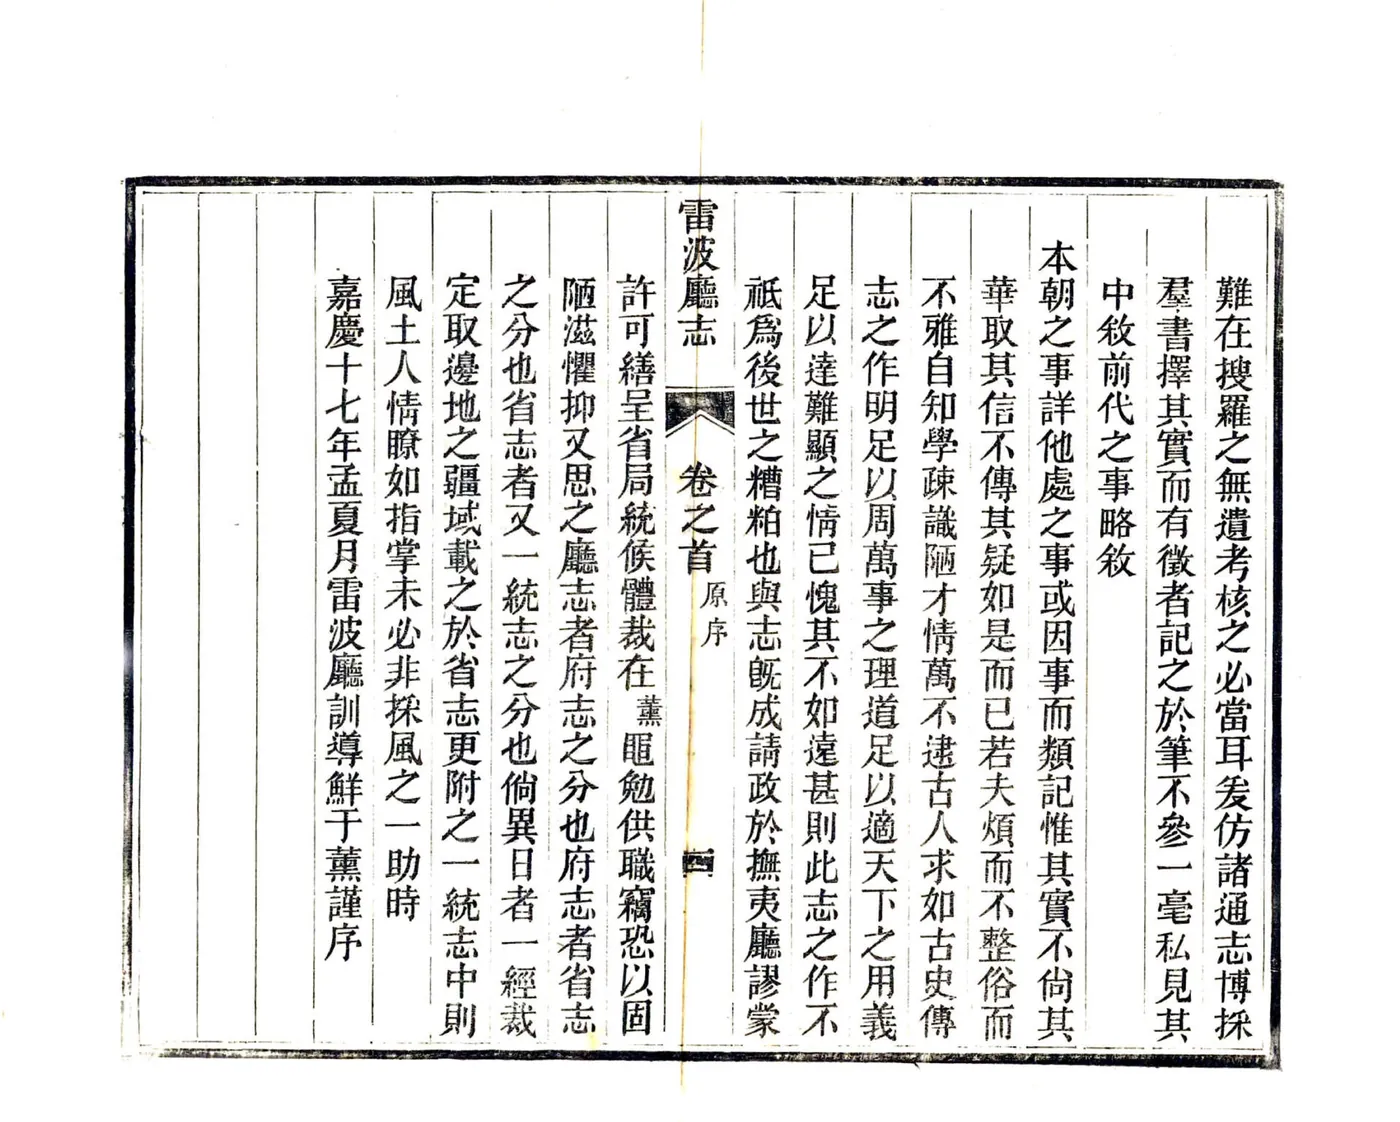 難在搜羅之無遺考核之必當耳爰仿諸通志博採
羣書擇其實而有徵者記之於筆不參一毫私見其
中敘前代之事略敘
本朝之事詳他處之事或因事而類記惟其實不尙其
華取其信不傳其疑如是而已若夫煩而不整俗而
不雅自知學疎識陋才情萬不逮古人求如古史傳
志之作明足以周萬事之理道足以適天下之用義
足以達難顯之情已愧其不如遠甚則此志之作不
祇爲後世之糟粕也與志旣成請政於撫夷廳謬蒙
雷波廳志 卷之首 原序 四
許可繕呈省局統候體裁在薰黽勉供職竊恐以固
陋滋懼抑又思之廳志者府志之分也府志者省志
之分也省志者又一統志之分也倘異日者一經裁
定取邊地之疆域載之於省志更附之一統志中則
風土人情瞭如指掌未必非採風之一助時
嘉慶十七年孟夏月雷波廳訓導鮮于薰謹序